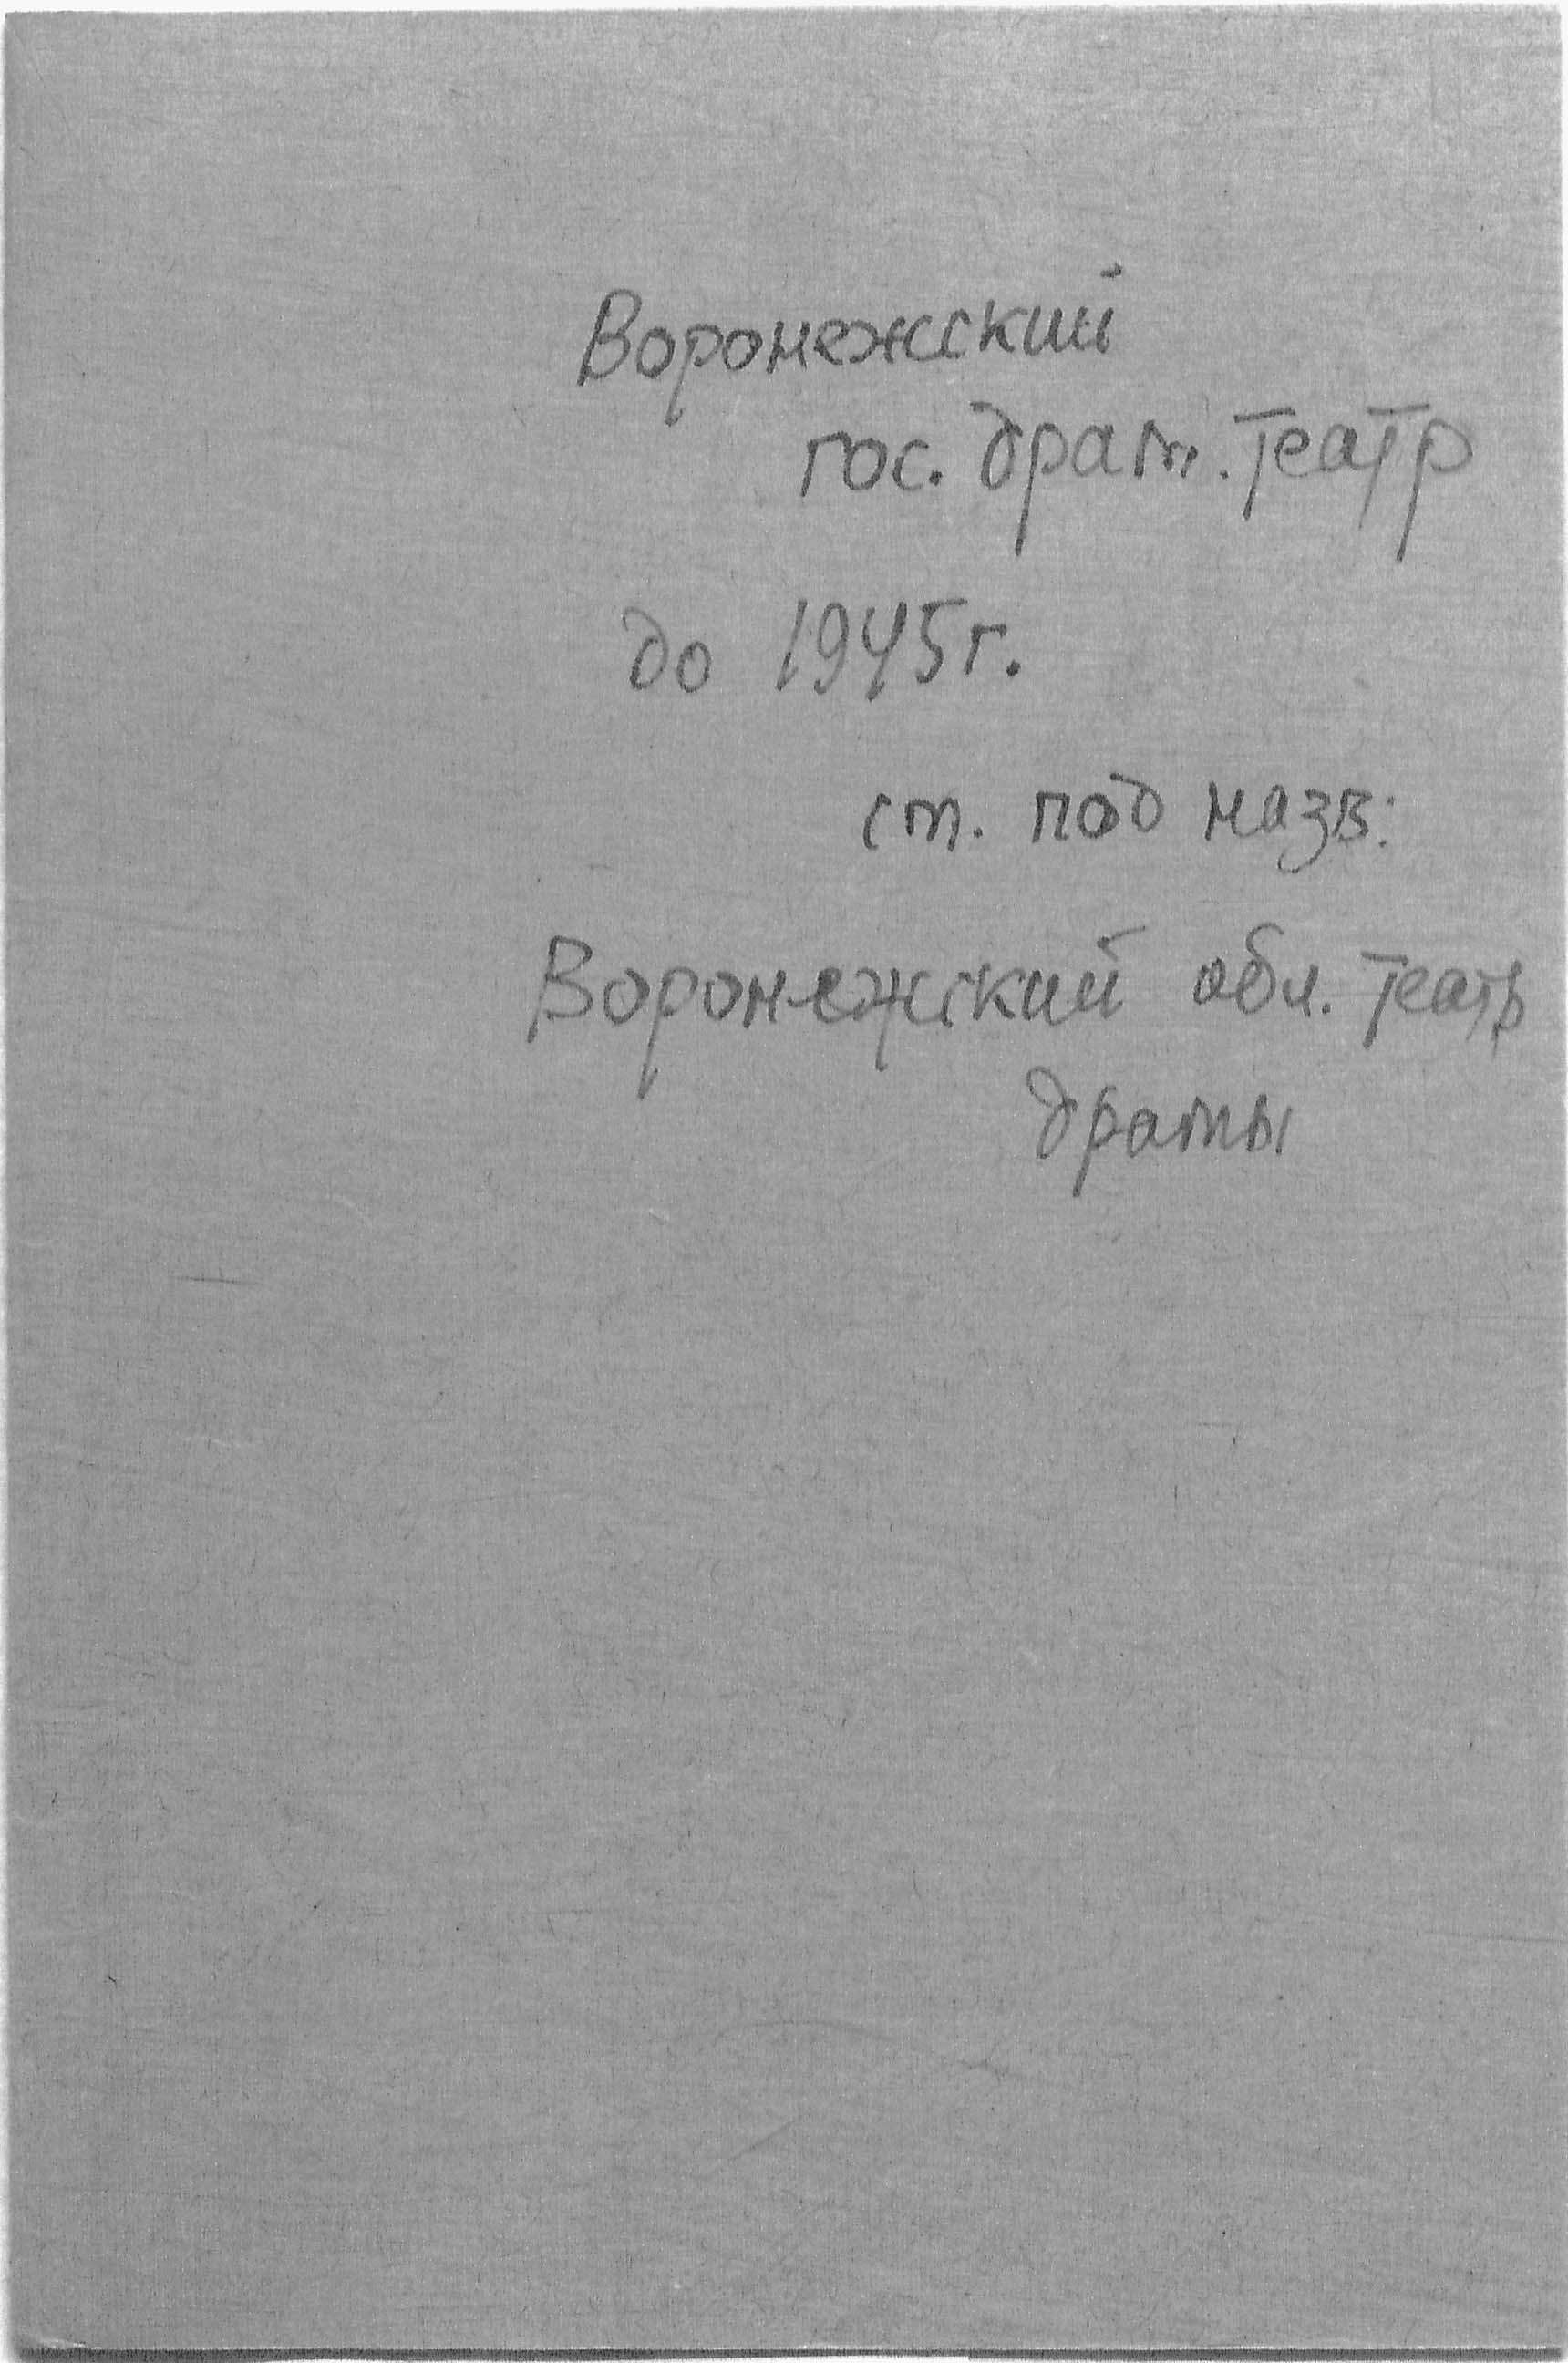 Воронежский
гос. драм. театр
до 1945г.
см. под назв:
Воронежский обл. театр
драмы